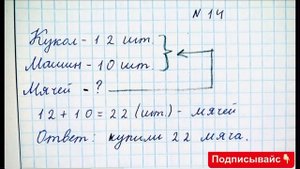 № 14
Кукол - 12 шт.
Машин - 10 шт.
Мячей - ?
12 + 10 = 22 (шт.) - мячей
Ответ: купили 22 мяча.
Подписывайс